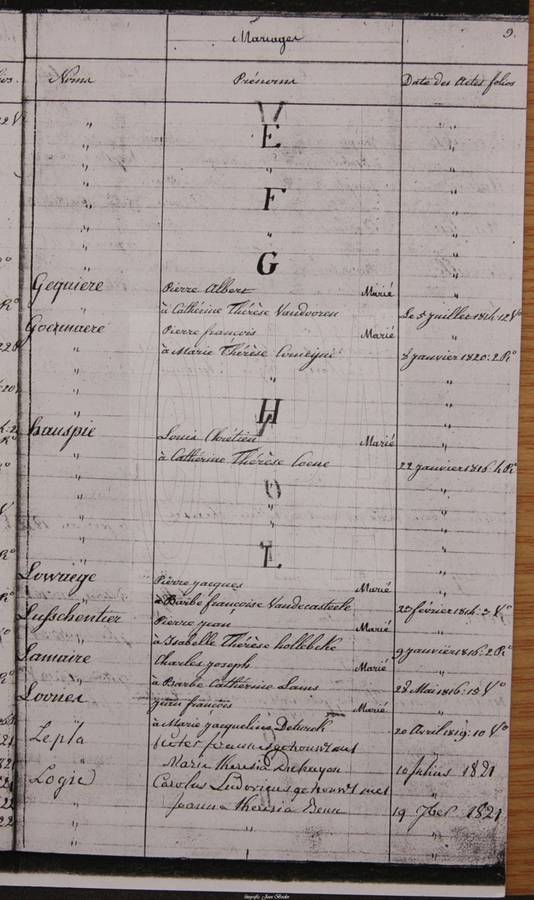 9.
Mariages
Noms Prénoms Date des Actes folios
E
F
G
Gequiere Pierre Albert Marié
à Cathérine Thérèse Vandvoren Le 5 juillet 1814. 12 Vº
Goermaere Pierre françois Marié
à Marie Thérèse 8 janvier 1820. 2 Rº
H
hauspie Louis Chrétien Marié
à Cathérine Thérèse Coene 22 janvier 1816. 4 Rº
L
Lowriege Pierre jacques Marié
à Barbe françoise Vandecasteele 25 février 1814. 5 Vº
Lusschentier Pierre jean Marié
à Isabelle Thérèse hollebeke 9 janvier 1816. 2 Rº
Lamaire Charles joseph Marié
à Barbe Cathérine Lams 28 Mai 1816. 15 Vº
jean françois Marié
à Marie jacqueline 20 Avril 1819. 10 Vº
Lepla
Marie theresia 10 julius 1821
Logie Carolus Ludovicus gehouwt met
Joanna Theresia 19 7ber 1821